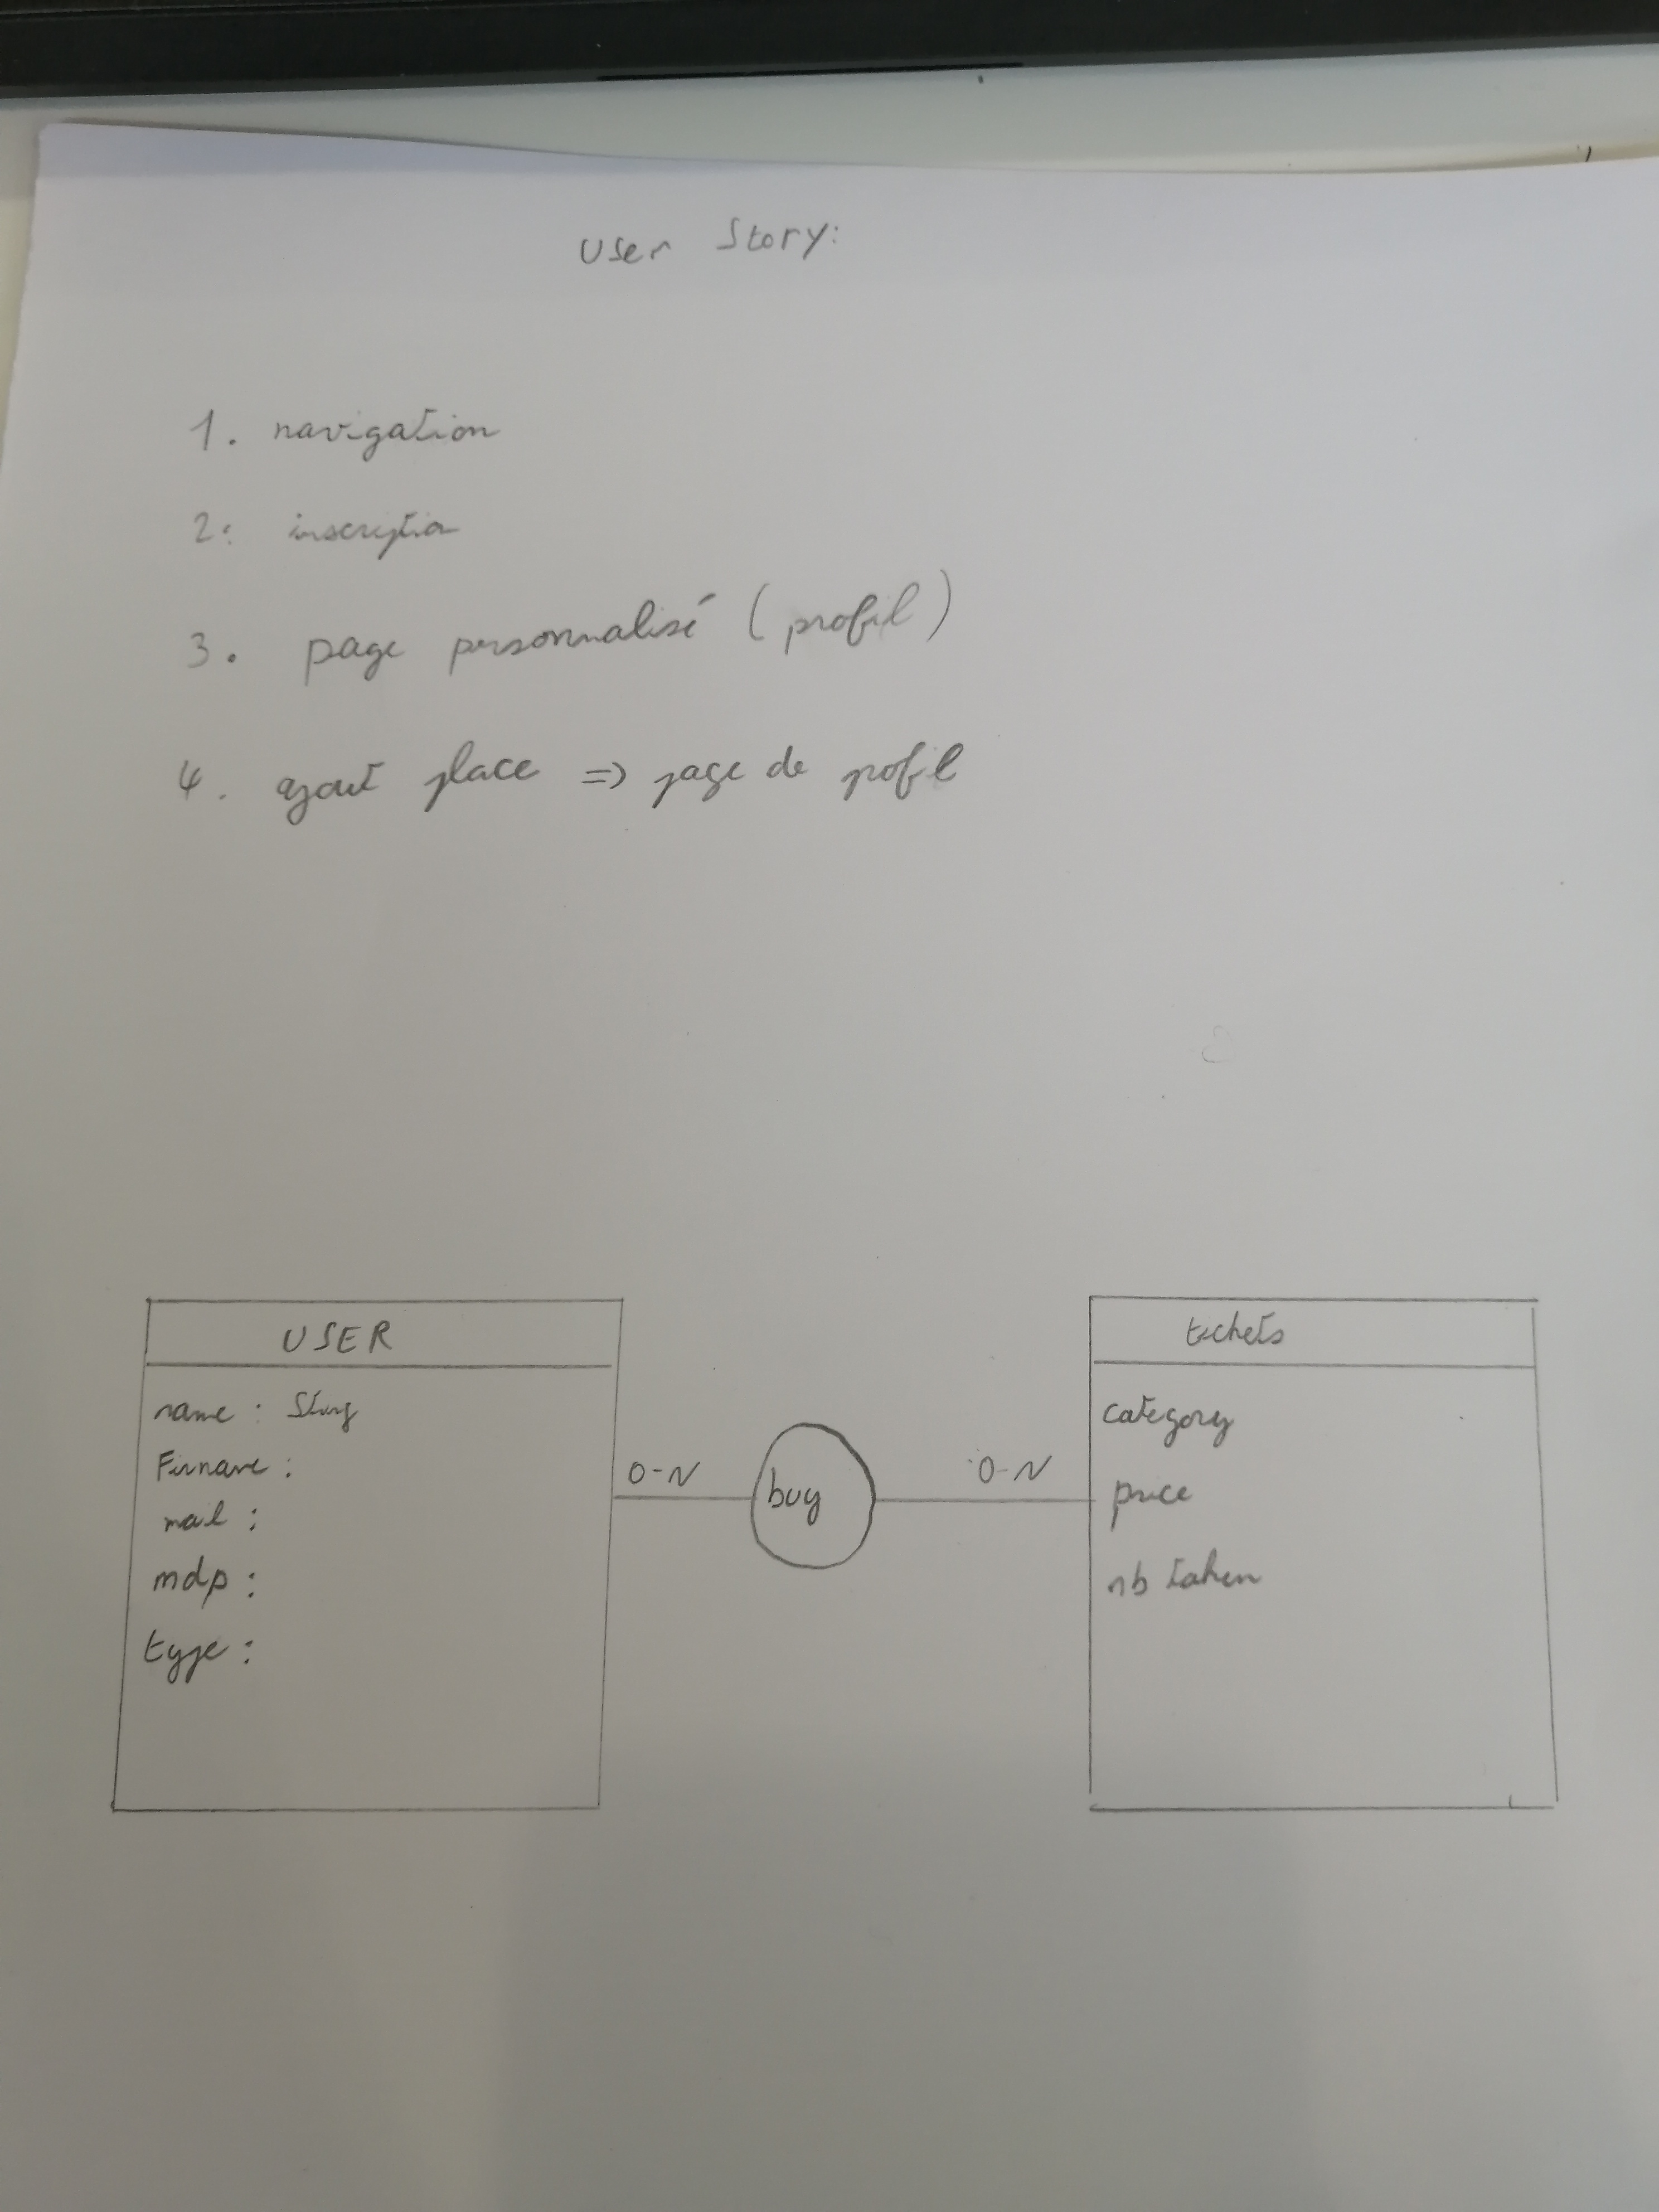 User Story:
1. navigation
2: inscription
3. page personnalisé (profil)
4. ajout place => page de profil
USER
name : String
mail :
mdp :
type :
0-N
buy
0-N
tickets
category
price
nb taken